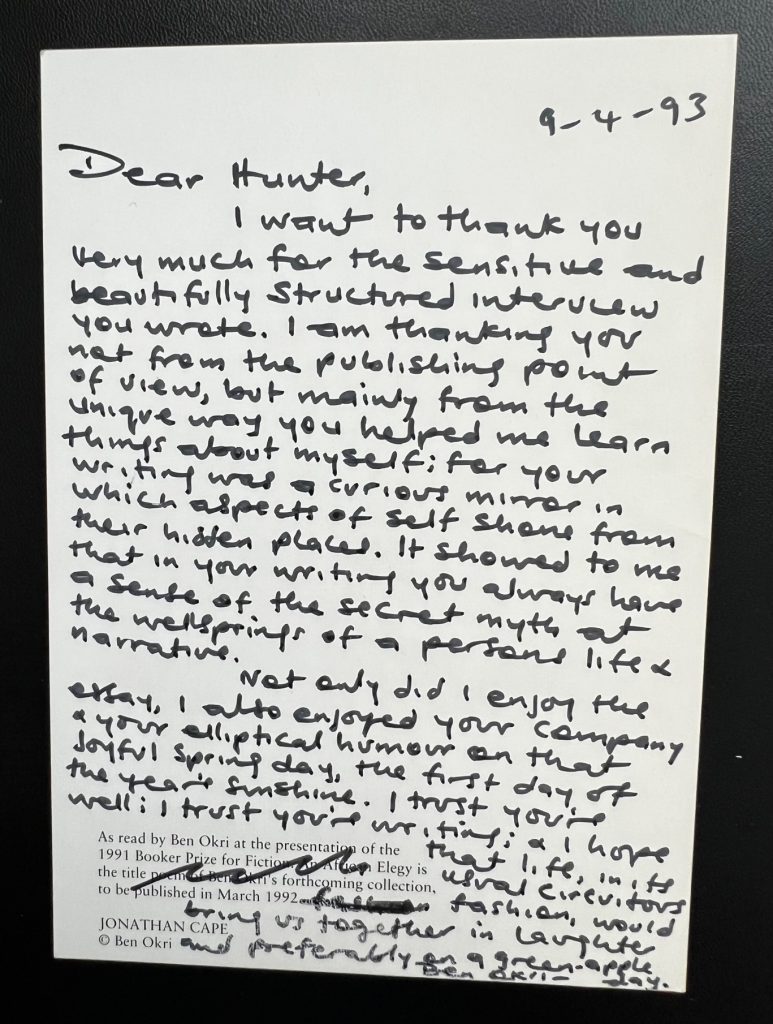 9-4-93
Dear Hunter,
I want to thank you
very much for the sensitive and
beautifully structured interview
you wrote. I am thanking you
not from the publishing point
of view, but mainly from the
unique way you helped me learn
things about myself; for your
writing was a curious mirror in
which aspects of self shone from
their hidden places. It showed to me
that in your writing you always have
a sense of the secret myth at
the wellsprings of a persons life &
narrative.
Not only did I enjoy the
essay, I also enjoyed your company
& your elliptical humour on that
joyful spring day, the first day of
the year's sunshine. I trust you're
well; I trust you're writing; & I hope
that life, in its
usual circuitous
fashion, would
bring us together in laughter
and preferably on a green-apple
day.
Ben Okri
As read by Ben Okri at the presentation of the
1991 Booker Prize for Fiction. An African Elegy is
the title poem of Ben Okri's forthcoming collection,
to be published in March 1992
JONATHAN CAPE
© Ben Okri